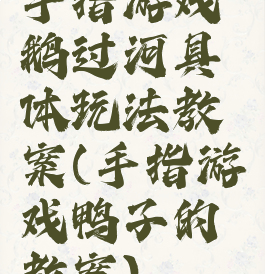 手指游戏
鹅过河具
体玩法教
案(手指游
戏鸭子的
教案)